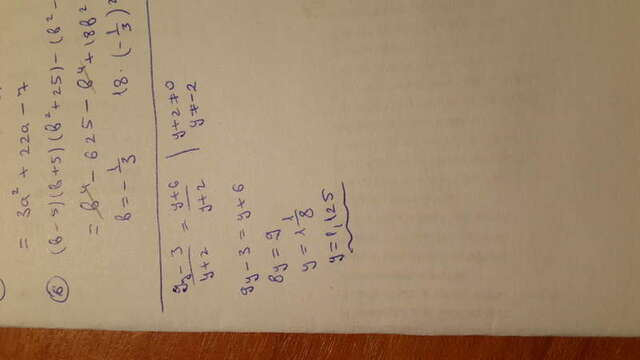 = 3a² + 22a - 7
⑥ (b-5)(b+5)(b²+25)-(b²-
= b⁴ - 625 - b⁴ + 18b²
b = -1/3 18·(-1/3)²
(9y-3)/(y+2) = (y+6)/(y+2) | y+2≠0
y≠-2
9y-3 = y+6
8y = 9
y = 1 1/8
y = 1,125